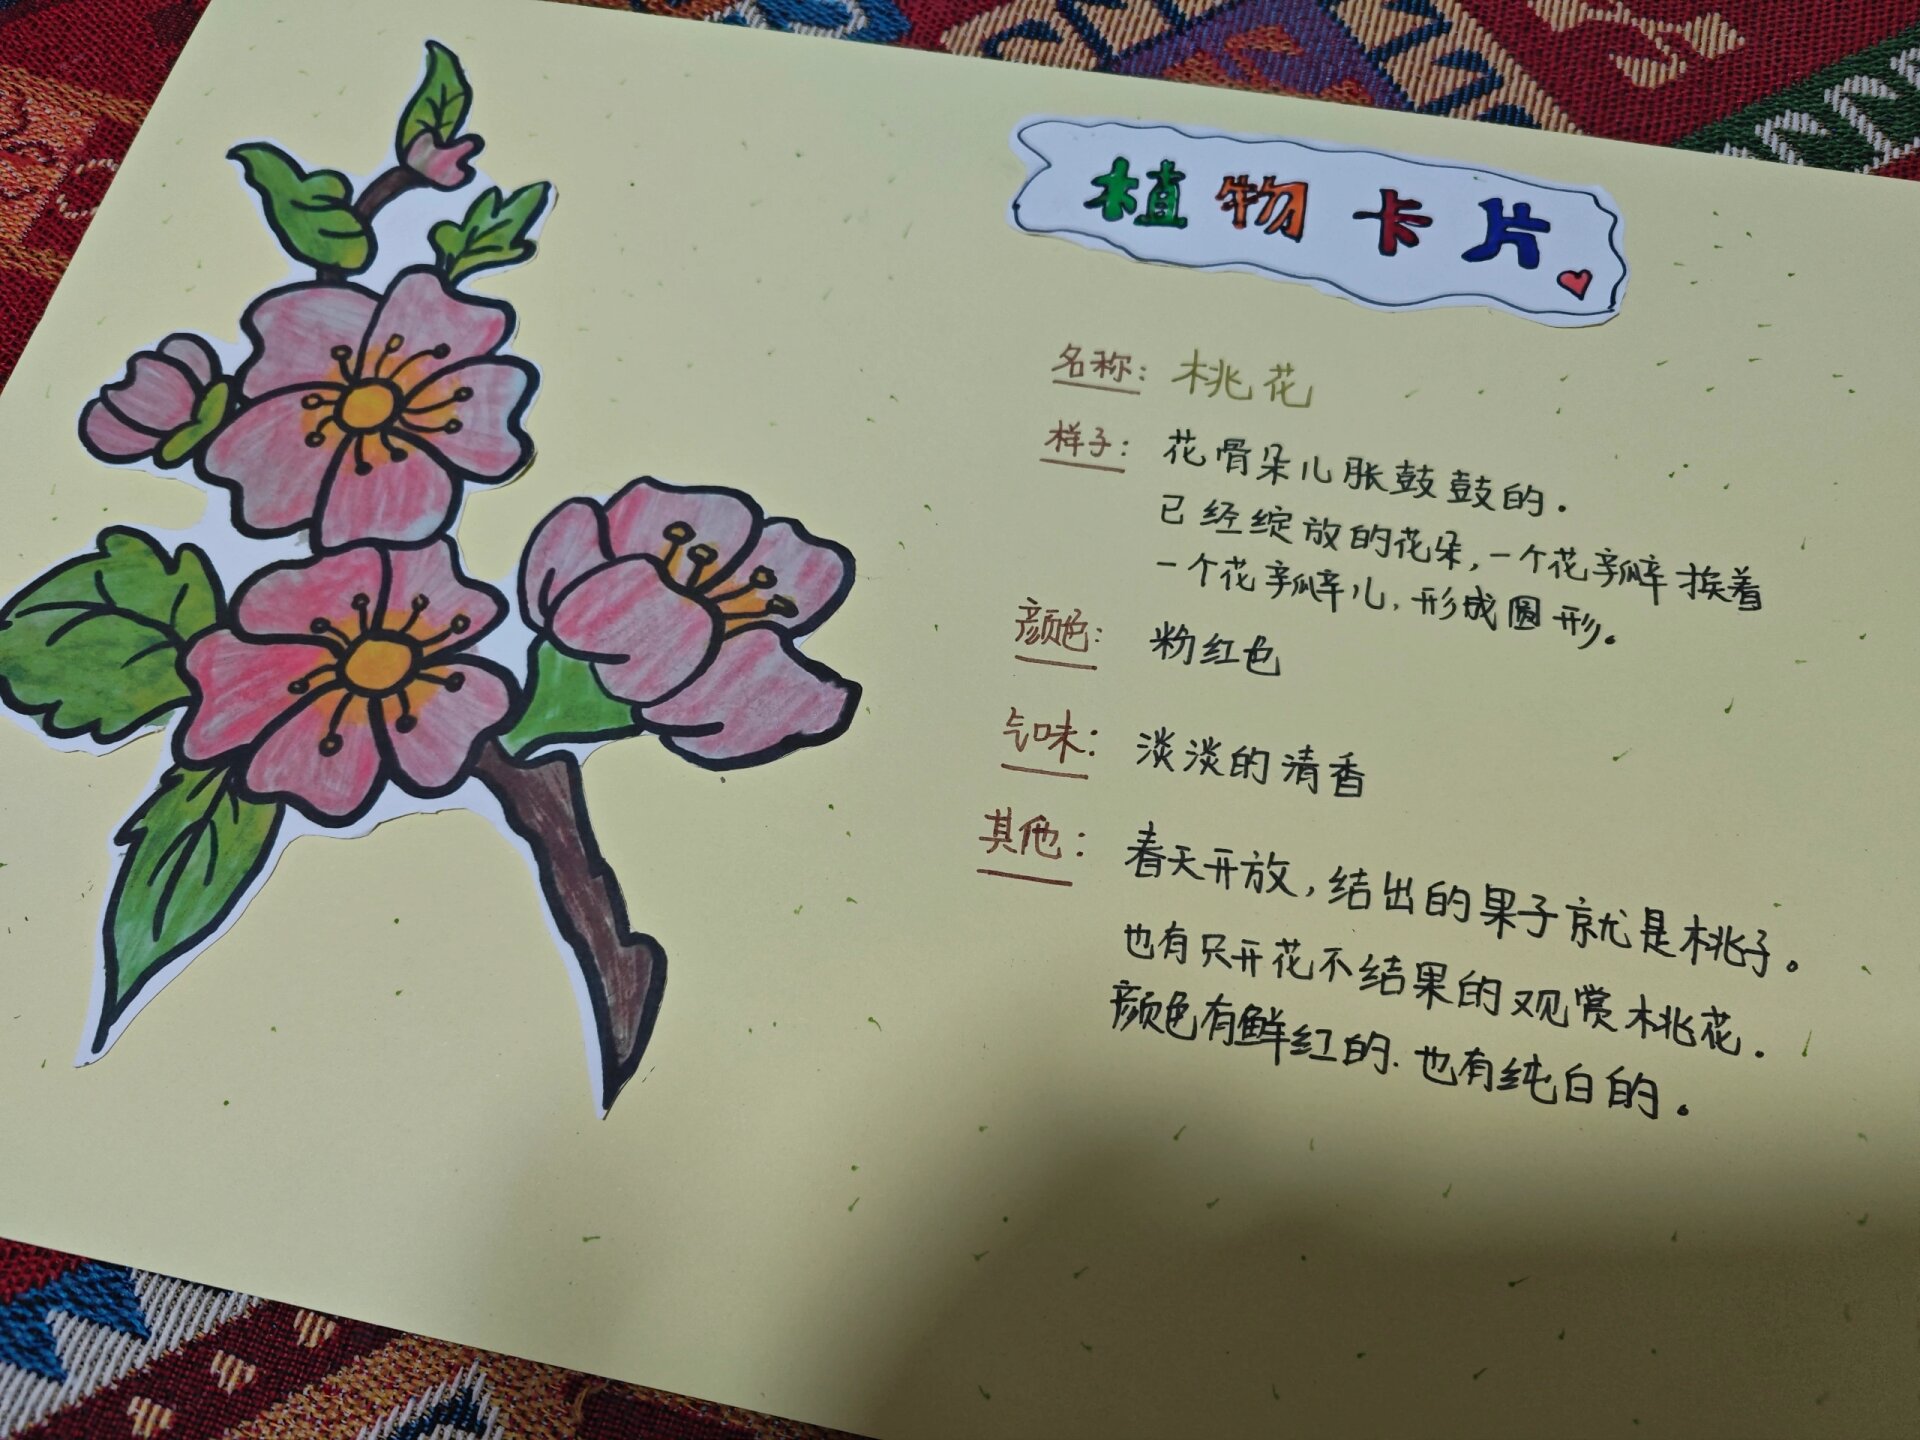 植物卡片
名称：桃花
样子：花骨朵儿胀鼓鼓的.
已经绽放的花朵,一个花瓣挨着
一个花瓣儿,形成圆形。
颜色：粉红色
气味：淡淡的清香
其他：春天开放,结出的果子就是桃子。
也有只开花不结果的观赏桃花.
颜色有鲜红的.也有纯白的。